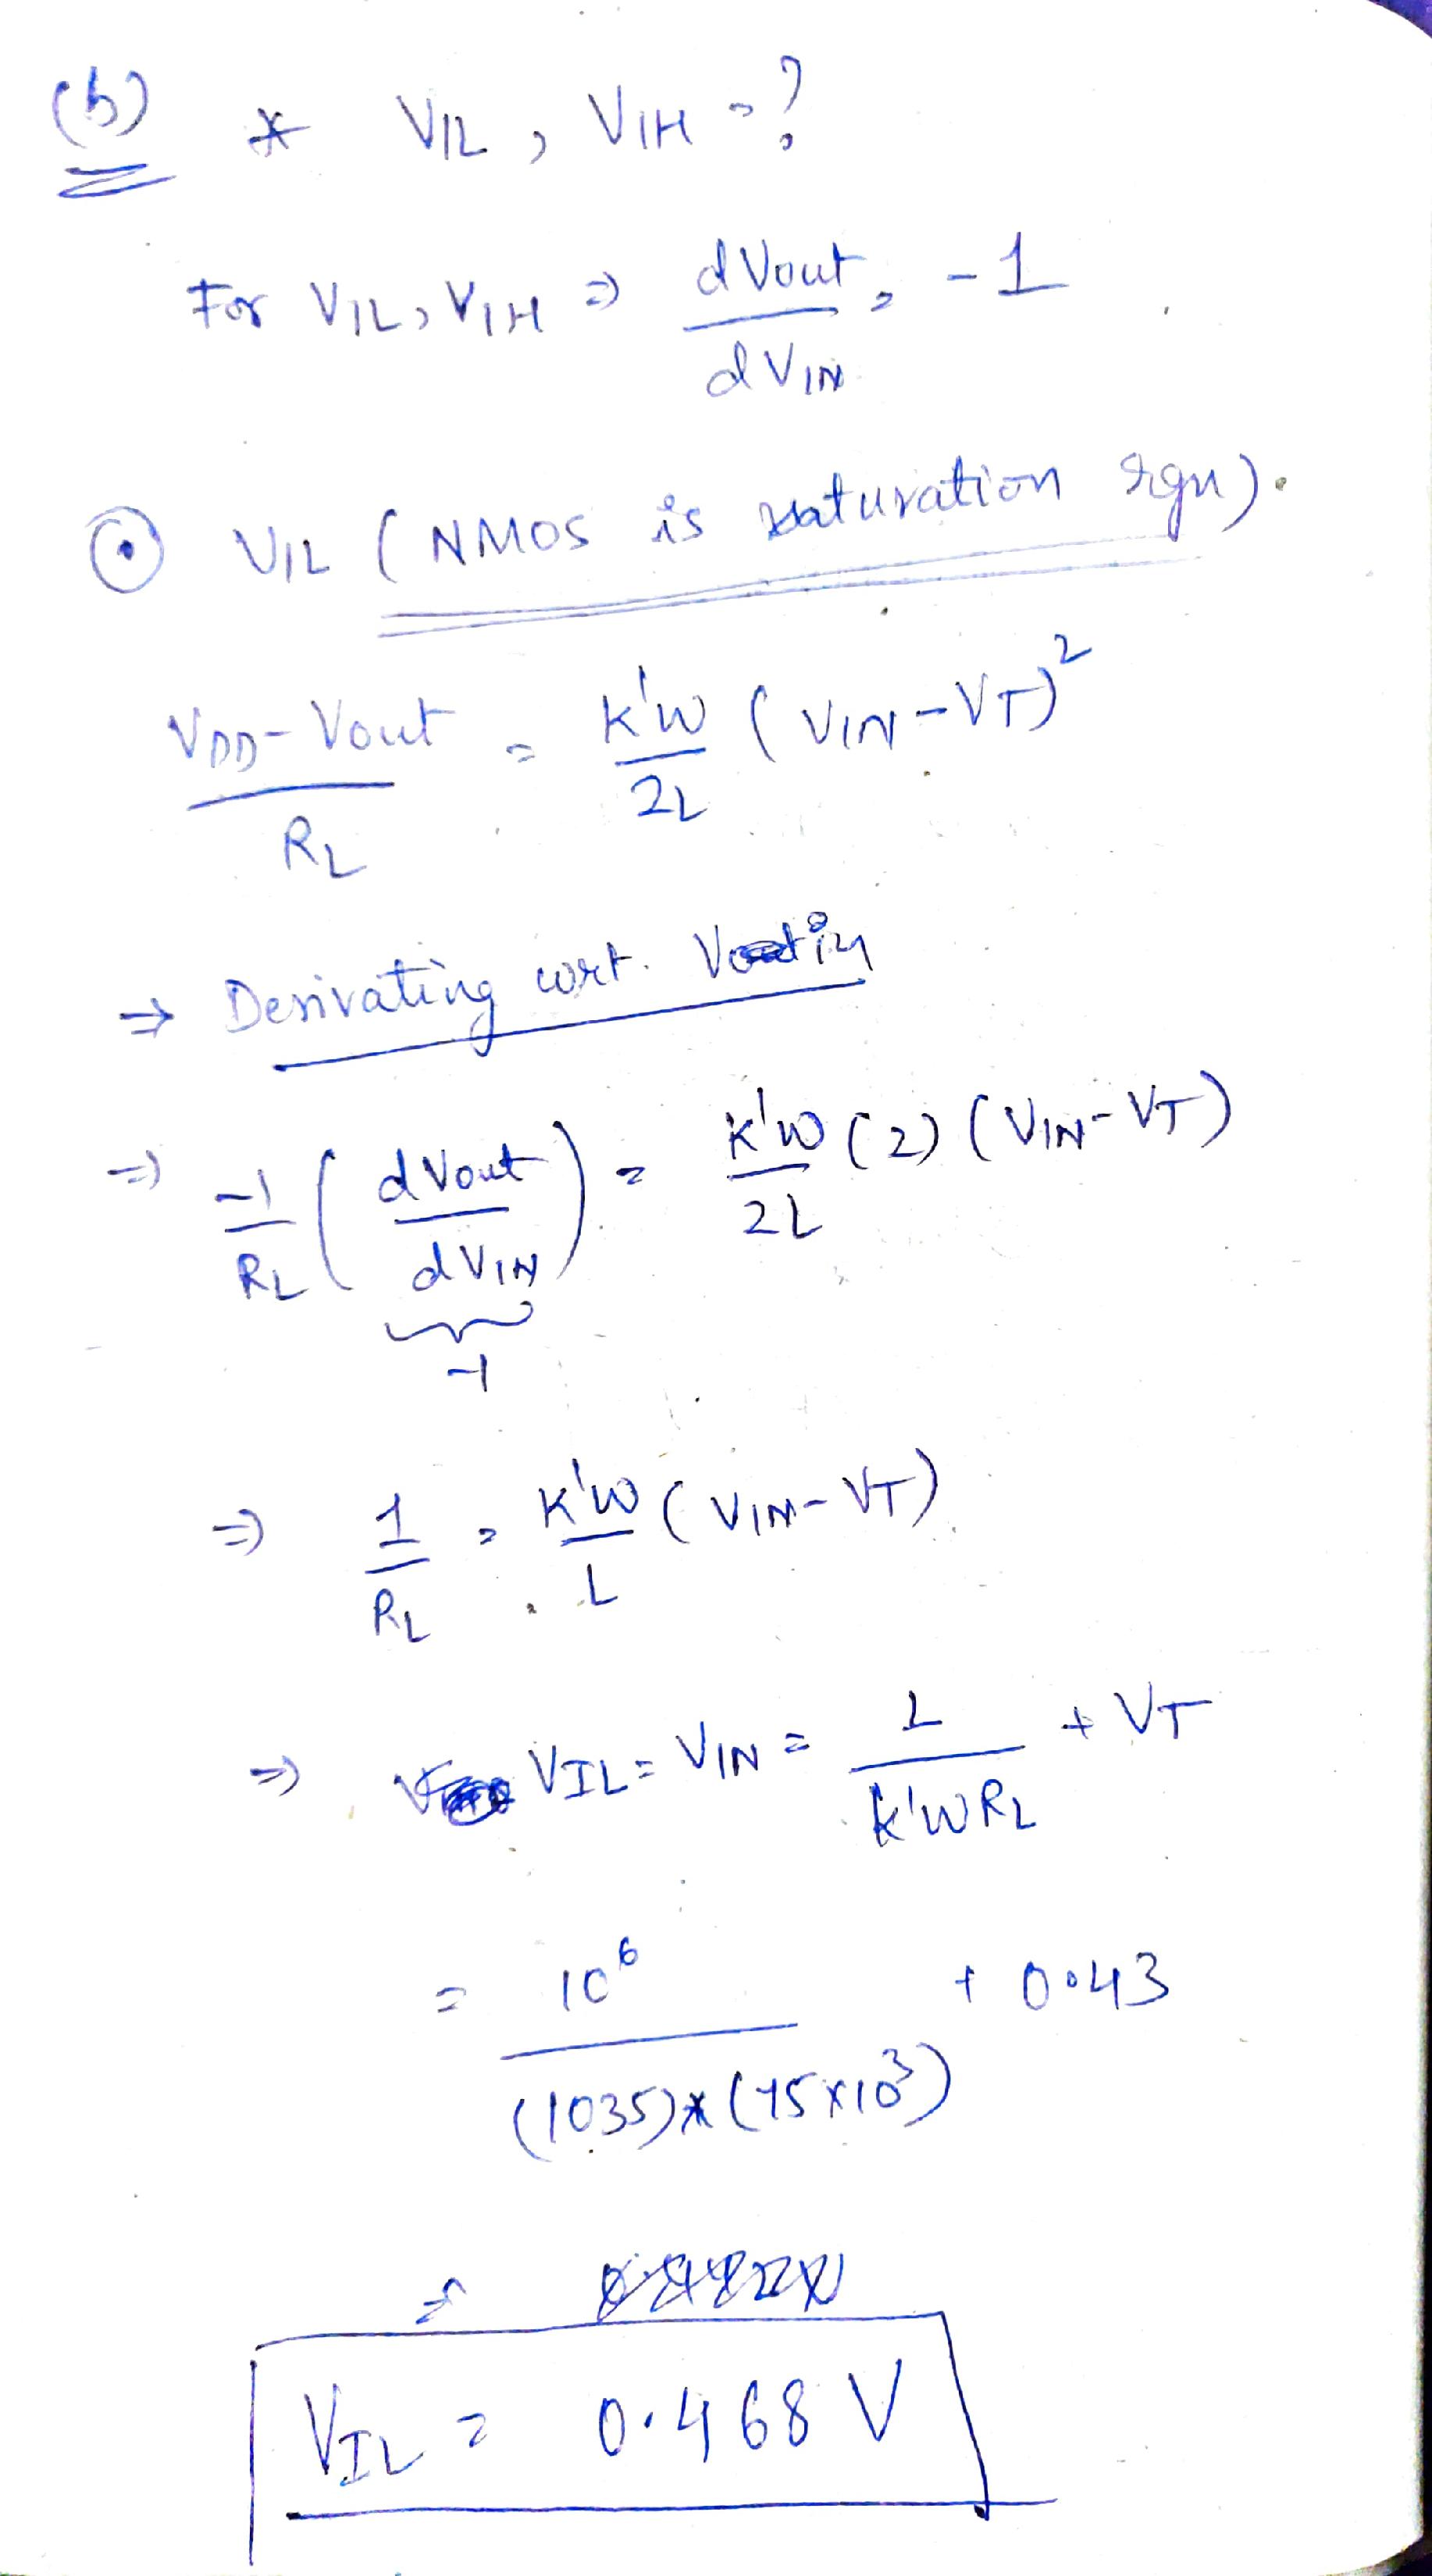 (b) * VIL, VIH = ?
For VIL, VIH ⇒ dVout/dVIN = -1
⊙ VIL (NMOS is saturation rgn).
(VDD - Vout)/RL = K'W/2L (VIN - VT)²
→ Derivating wrt. Vin
⇒ -1/RL (dVout/dVIN) = K'W/2L (2) (VIN - VT)
-1
⇒ 1/RL = K'W/L (VIN - VT)
⇒ VIL = VIN = L/(K'WRL) + VT
= 10⁶/((1035)*(75×10³)) + 0.43
=
VIL = 0.468 V